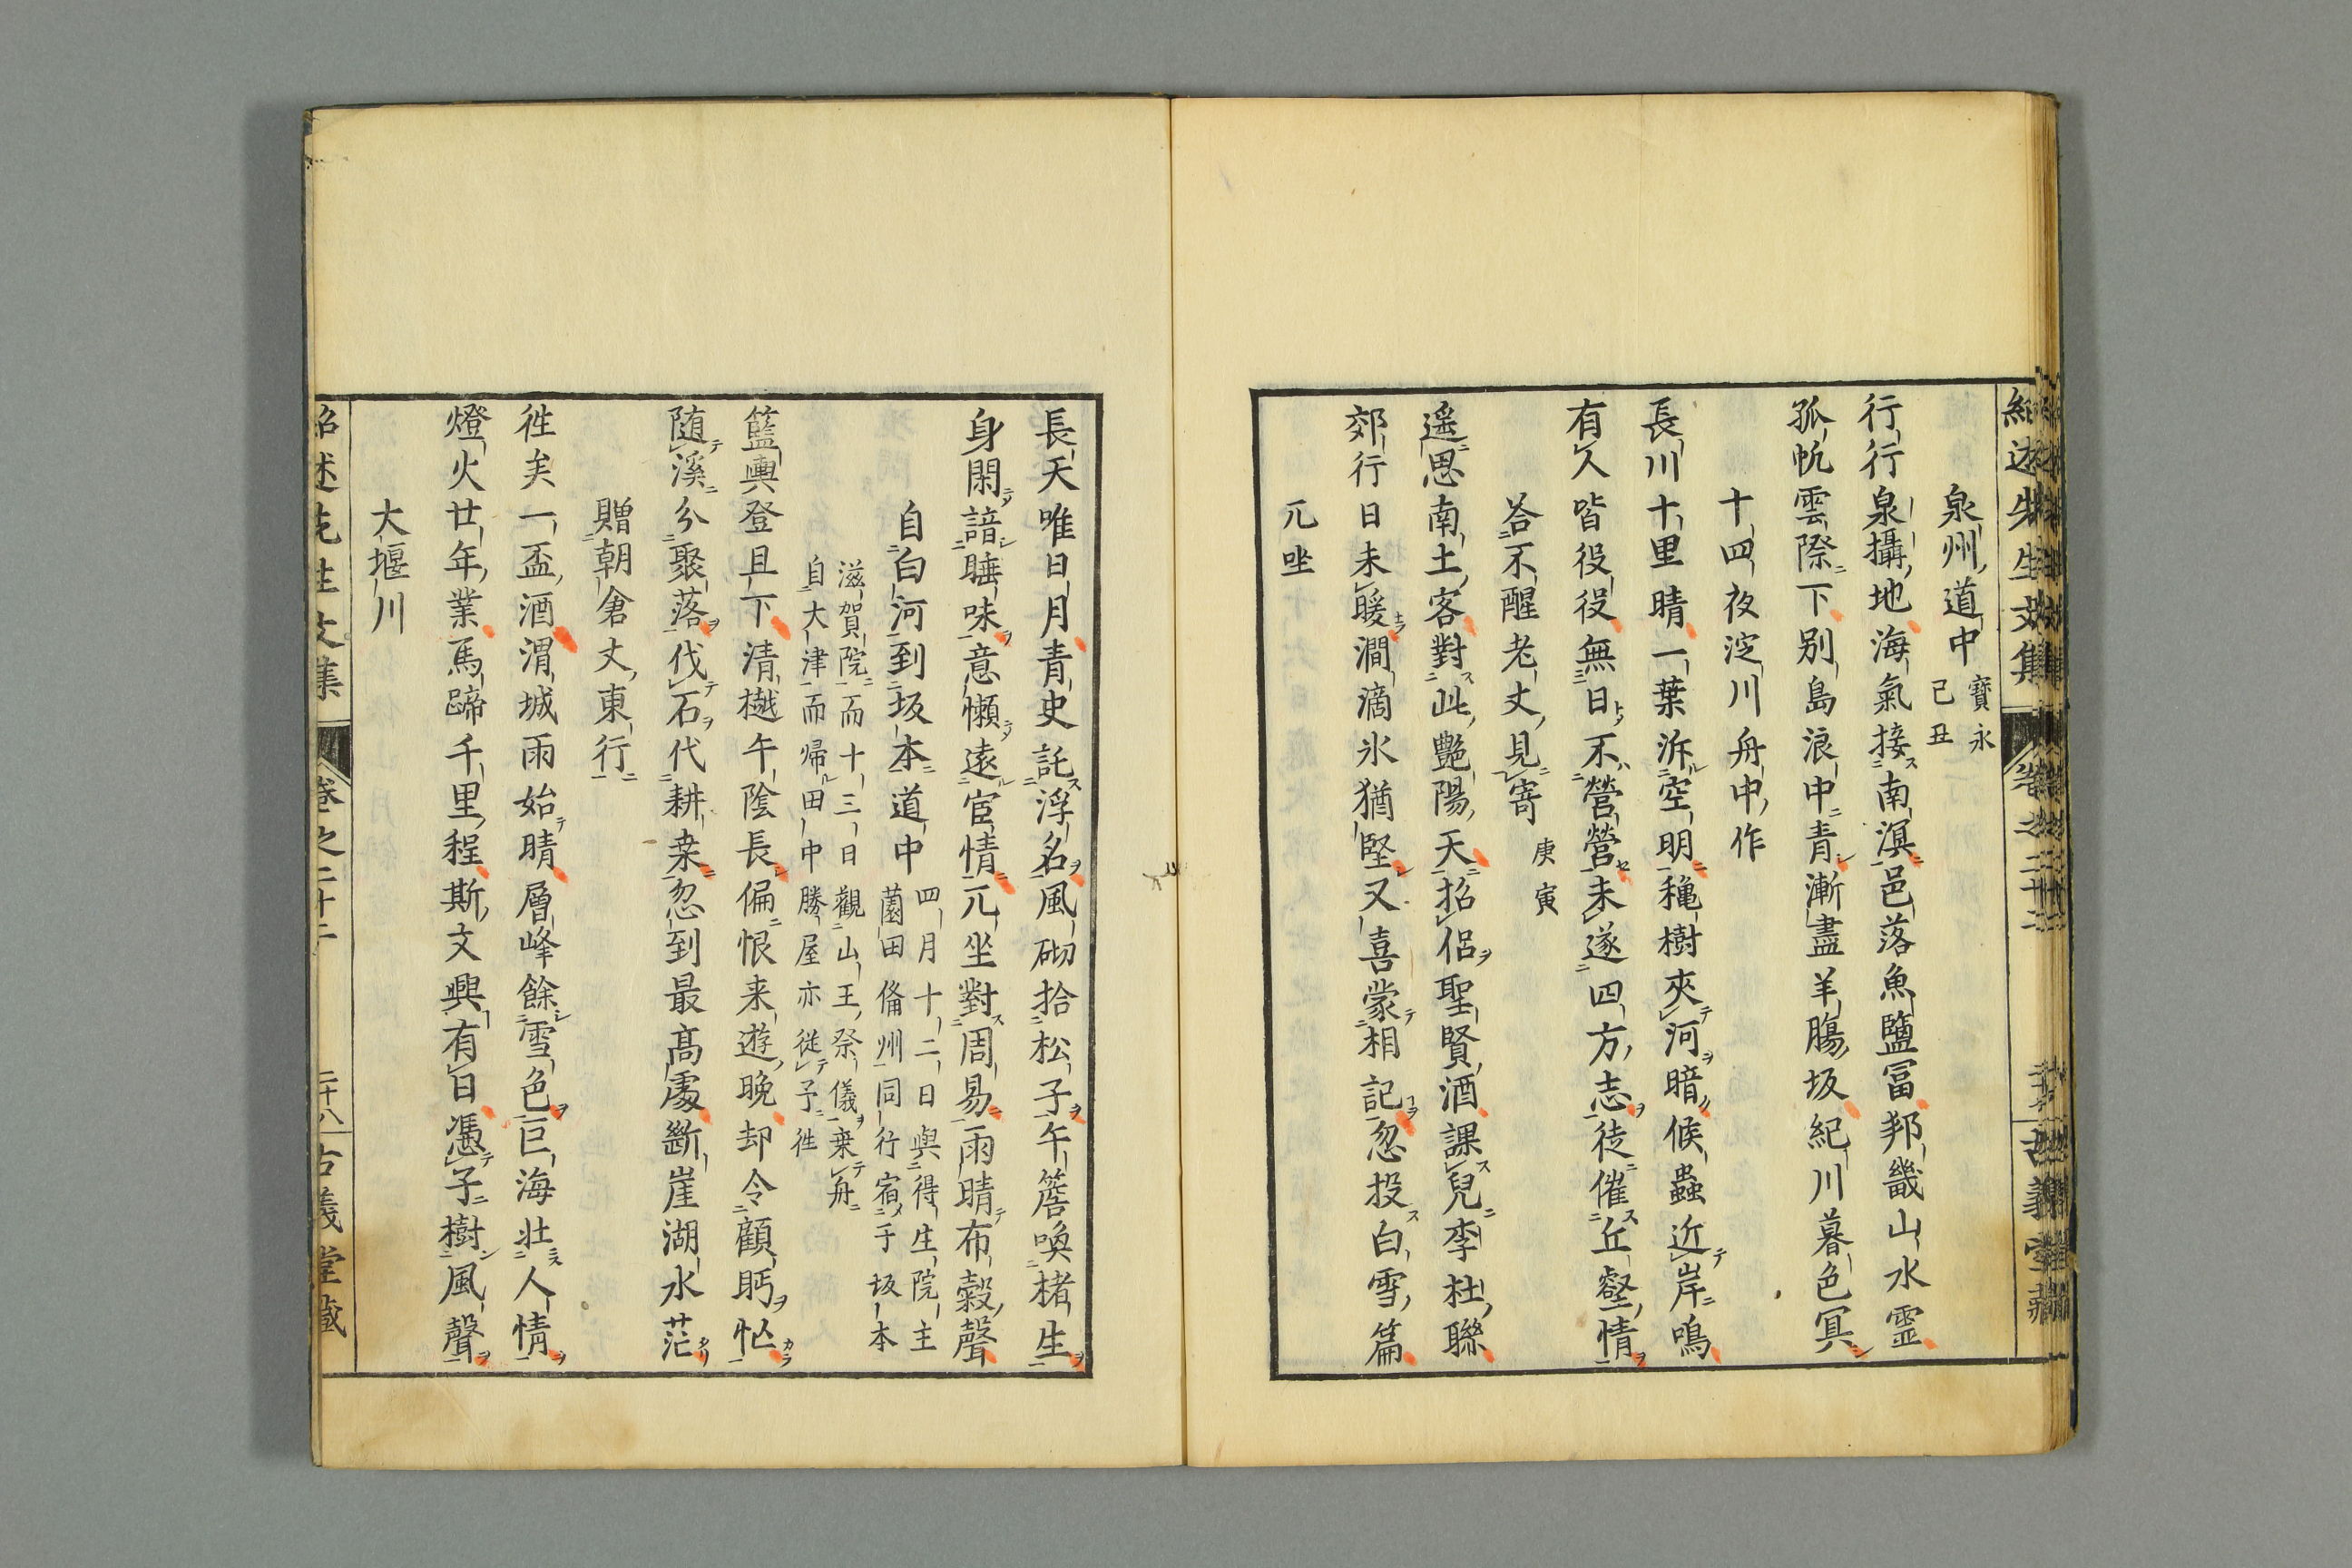 紹述先生文集 卷之二十二 古義堂藏
泉州道中 寶永
己丑
行行泉攝地海氣接南溟邑落魚鹽冨邦畿山水霊
孤帆雲際下別島浪中青漸盡羊膓坂紀川暮色冥
十四夜淀川舟中作
長川十里晴一葉泝空明穐樹夾河暗候蟲近岸鳴
有久皆役役無日不營營未遂四方志徒催丘壑情
荅不醒老丈見寄 庚寅
遥思南土客對此艷陽天招侶聖賢酒課兒李杜聯
郊行日未暖澗滴氷猶堅又喜蒙相記忽投白雪篇
兀坐
長天唯日月青史託浮名風砌拾松子午簷喚楮生
身閑諳睡味意懶遠宦情兀坐對周易雨晴布穀聲
自白河到坂本道中 四月十二日與得生院主
薗田俻州同行宿于坂本
滋賀院而十三日觀山王祭儀棄舟
自大津而帰田中勝屋亦従予徃
籃輿登且下清樾午陰長偏恨来遊晩却令顧眄忙
随溪分聚落伐石代耕桒忽到最髙處斷崖湖水茫
贈朝倉丈東行
徃矣一盃酒渭城雨始晴層峰餘雪色巨海壮人情
燈火廿年業馬蹄千里程斯文興有日憑子樹風聲
大堰川
紹述先生文集 卷之二十二 二十八 古義堂藏